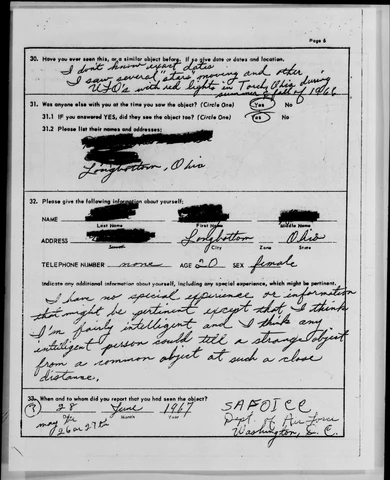 Page 6
30. Have you ever seen this, or a similar object before. If so give date or dates and location.
I don't know exact dates
I saw several "stars" moving and other
UFO's with red lights in Torch, Ohio during
summer & fall of 1966
31. Was anyone else with you at the time you saw the object? (Circle One) Yes No
31.1 IF you answered YES, did they see the object too? (Circle One) Yes No
31.2 Please list their names and addresses:
Longbottom, Ohio
32. Please give the following information about yourself:
NAME
Last Name First Name Middle Name
ADDRESS Longbottom Ohio
Street City Zone State
TELEPHONE NUMBER none AGE 20 SEX female
Indicate any additional information about yourself, including any special experience, which might be pertinent.
I have no special experience or information
that might be pertinent except that I think
I'm fairly intelligent and I think any
intelligent person could tell a strange object
from a common object at such a close
distance.
33. When and to whom did you report that you had seen the object?
(?) 28 June 1967 SAFOICC
Day Month Year Dept. of Air Force
may 26 or 27th Washington, D. C.